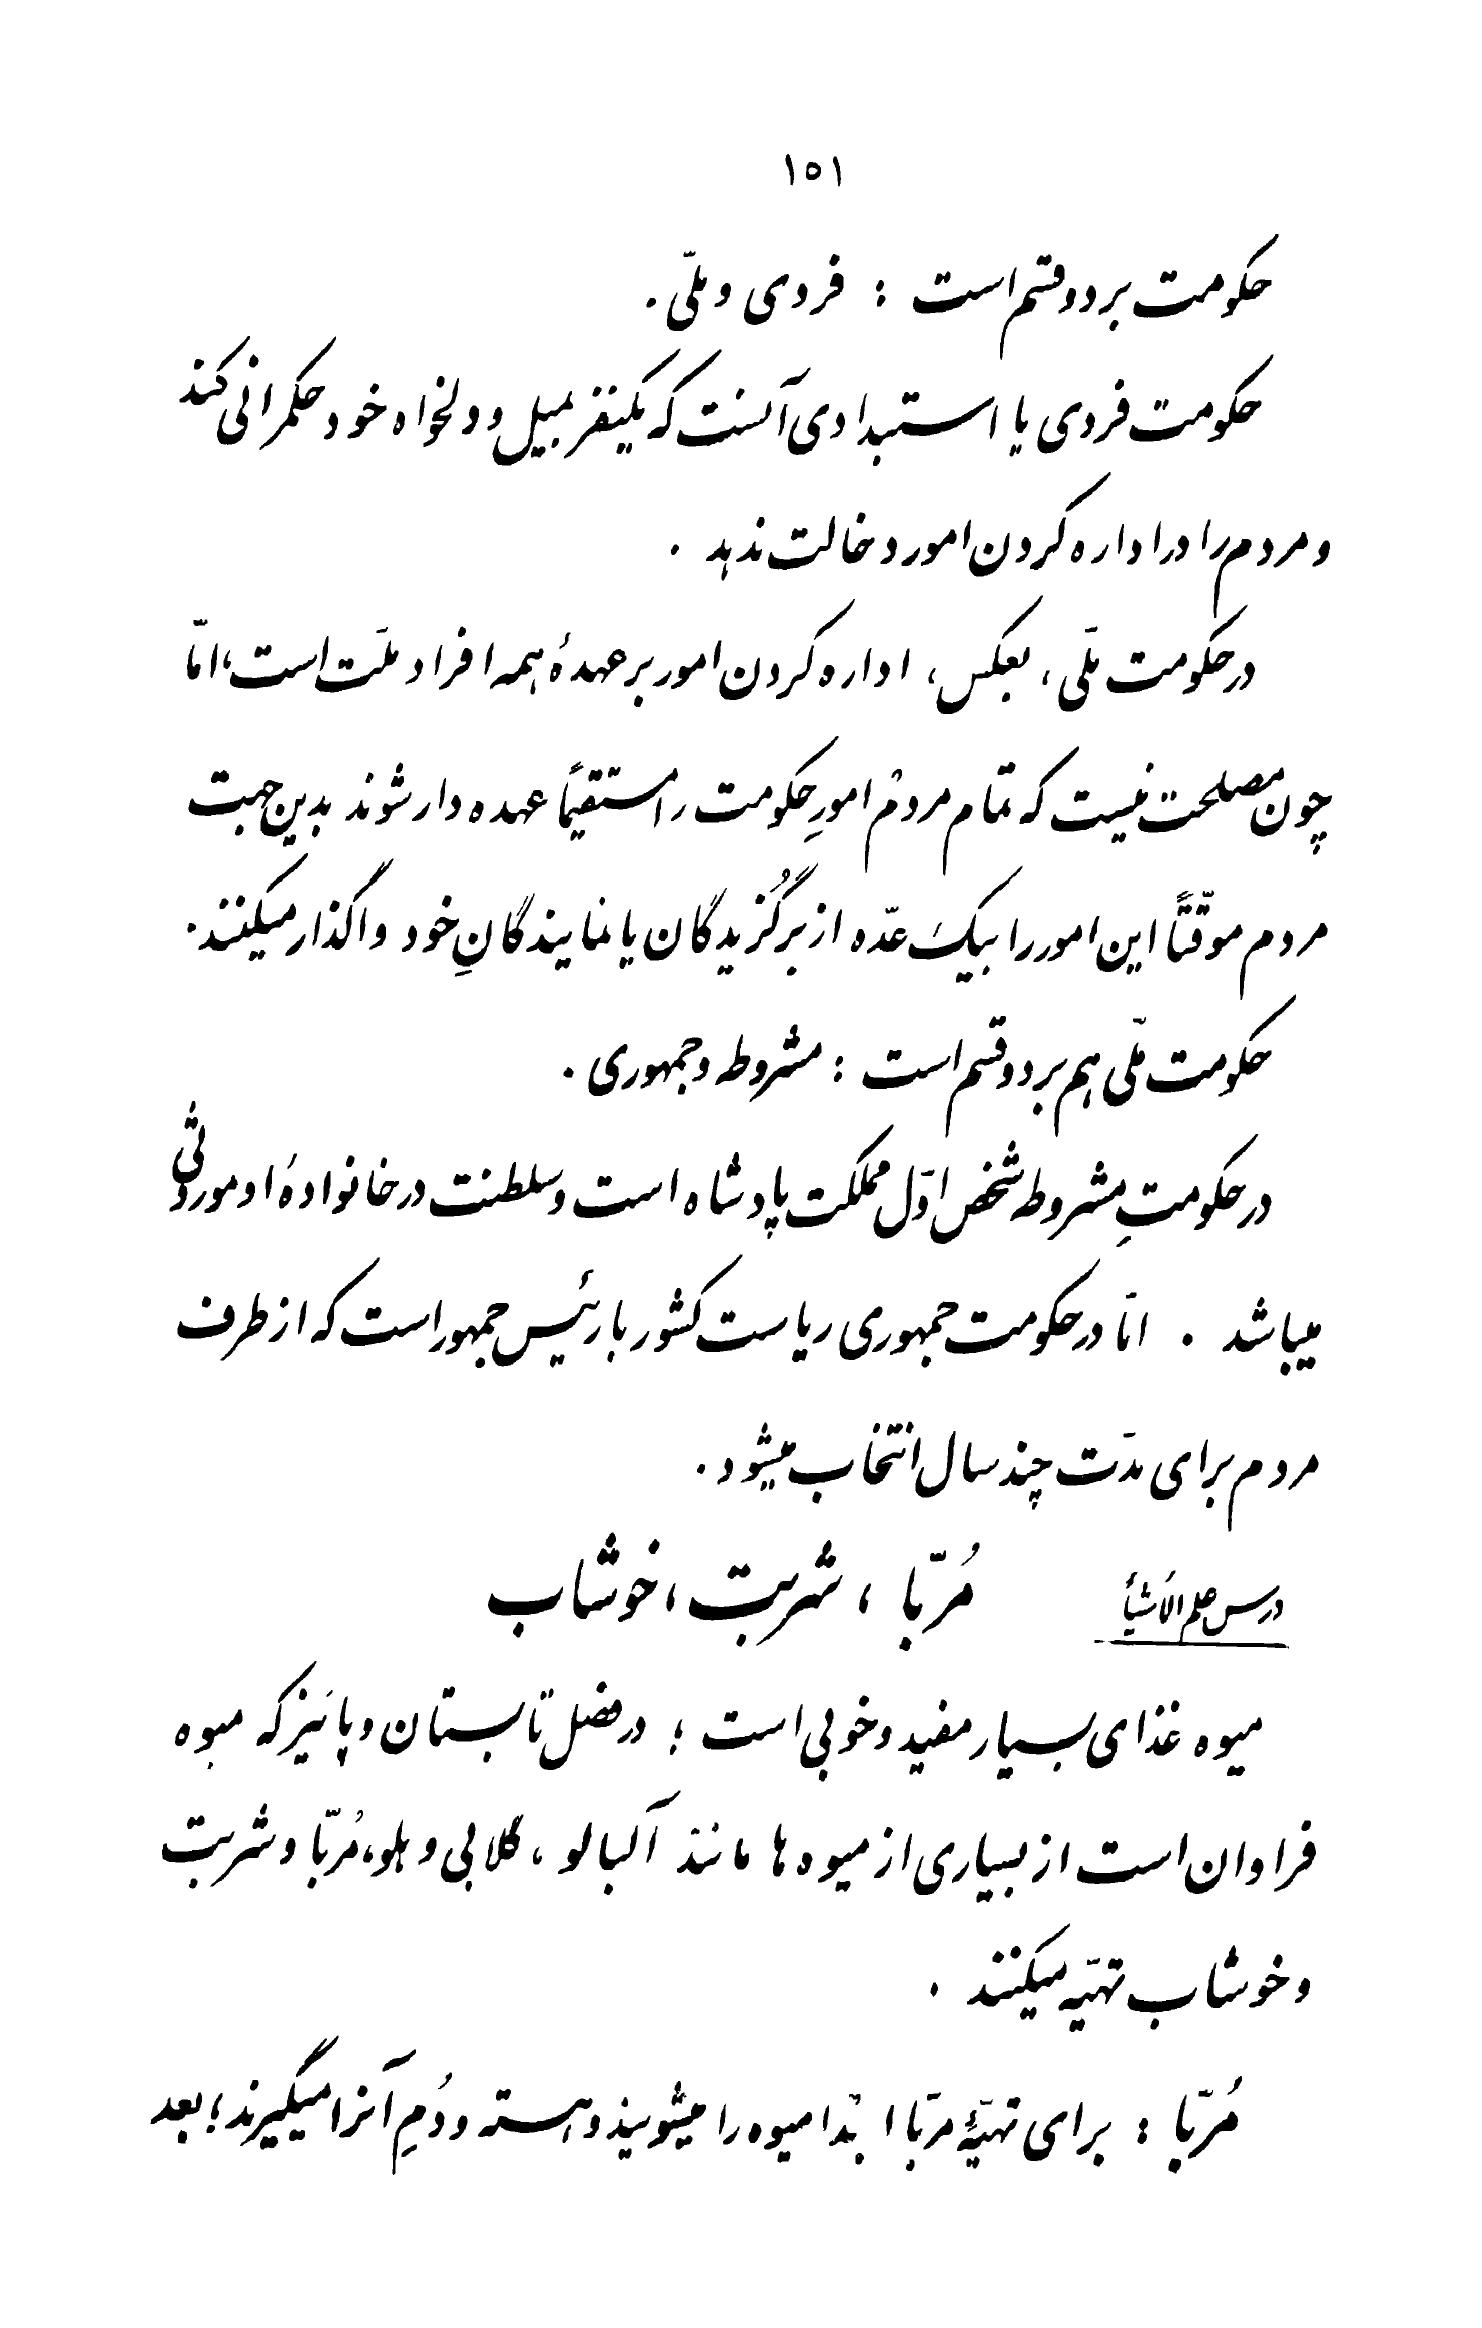 ۱۵۱
حکومت بر دو قسم است : فردی و ملّی .
حکومت فردی یا استبدادی آنست که یکنفر بمیل و دلخواه خود حکمرانی کند
و مردم را در اداره کردن امور دخالت ندهد .
در حکومت ملّی ، بعکس ، اداره کردن امور بر عهدهٔ همه افراد ملّت است ، امّا
چون مصلحت نیست که تمام مردمْ امورِ حکومت را مستقیماً عهده دار شوند بدین جهت
مردم موقّتاً این امور را بیکَ عدّه از برگُزیدگان یا نمایندگانِ خود واگذار میکنند .
حکومت ملّی هم بر دو قسم است : مشروطه و جمهوری .
در حکومتِ مشروطه شخص اوّل مملکت پادشاه است و سلطنت در خانوادهٔ او موروثی
میباشد . امّا در حکومت جمهوری ریاست کشور با رئیس جمهور است که از طرف
مردم برای مدّت چند سال انتخاب میشود .
درس علم الأشیأ مُربّا ، شربت ، خوشاب
میوه غذای بسیار مفید و خوبی است ؛ در فصل تابستان و پائیز که میوه
فراوان است از بسیاری از میوه ها مانند آلبالو ، گلابی و هلو ، مُربّا و شربت
و خوشاب تهیّه میکنند .
مُربّا : برای تهیّهٔ مربّا ابتدا میوه را میشویند و هسته و دُمِ آنرا میگیرند ؛ بعد